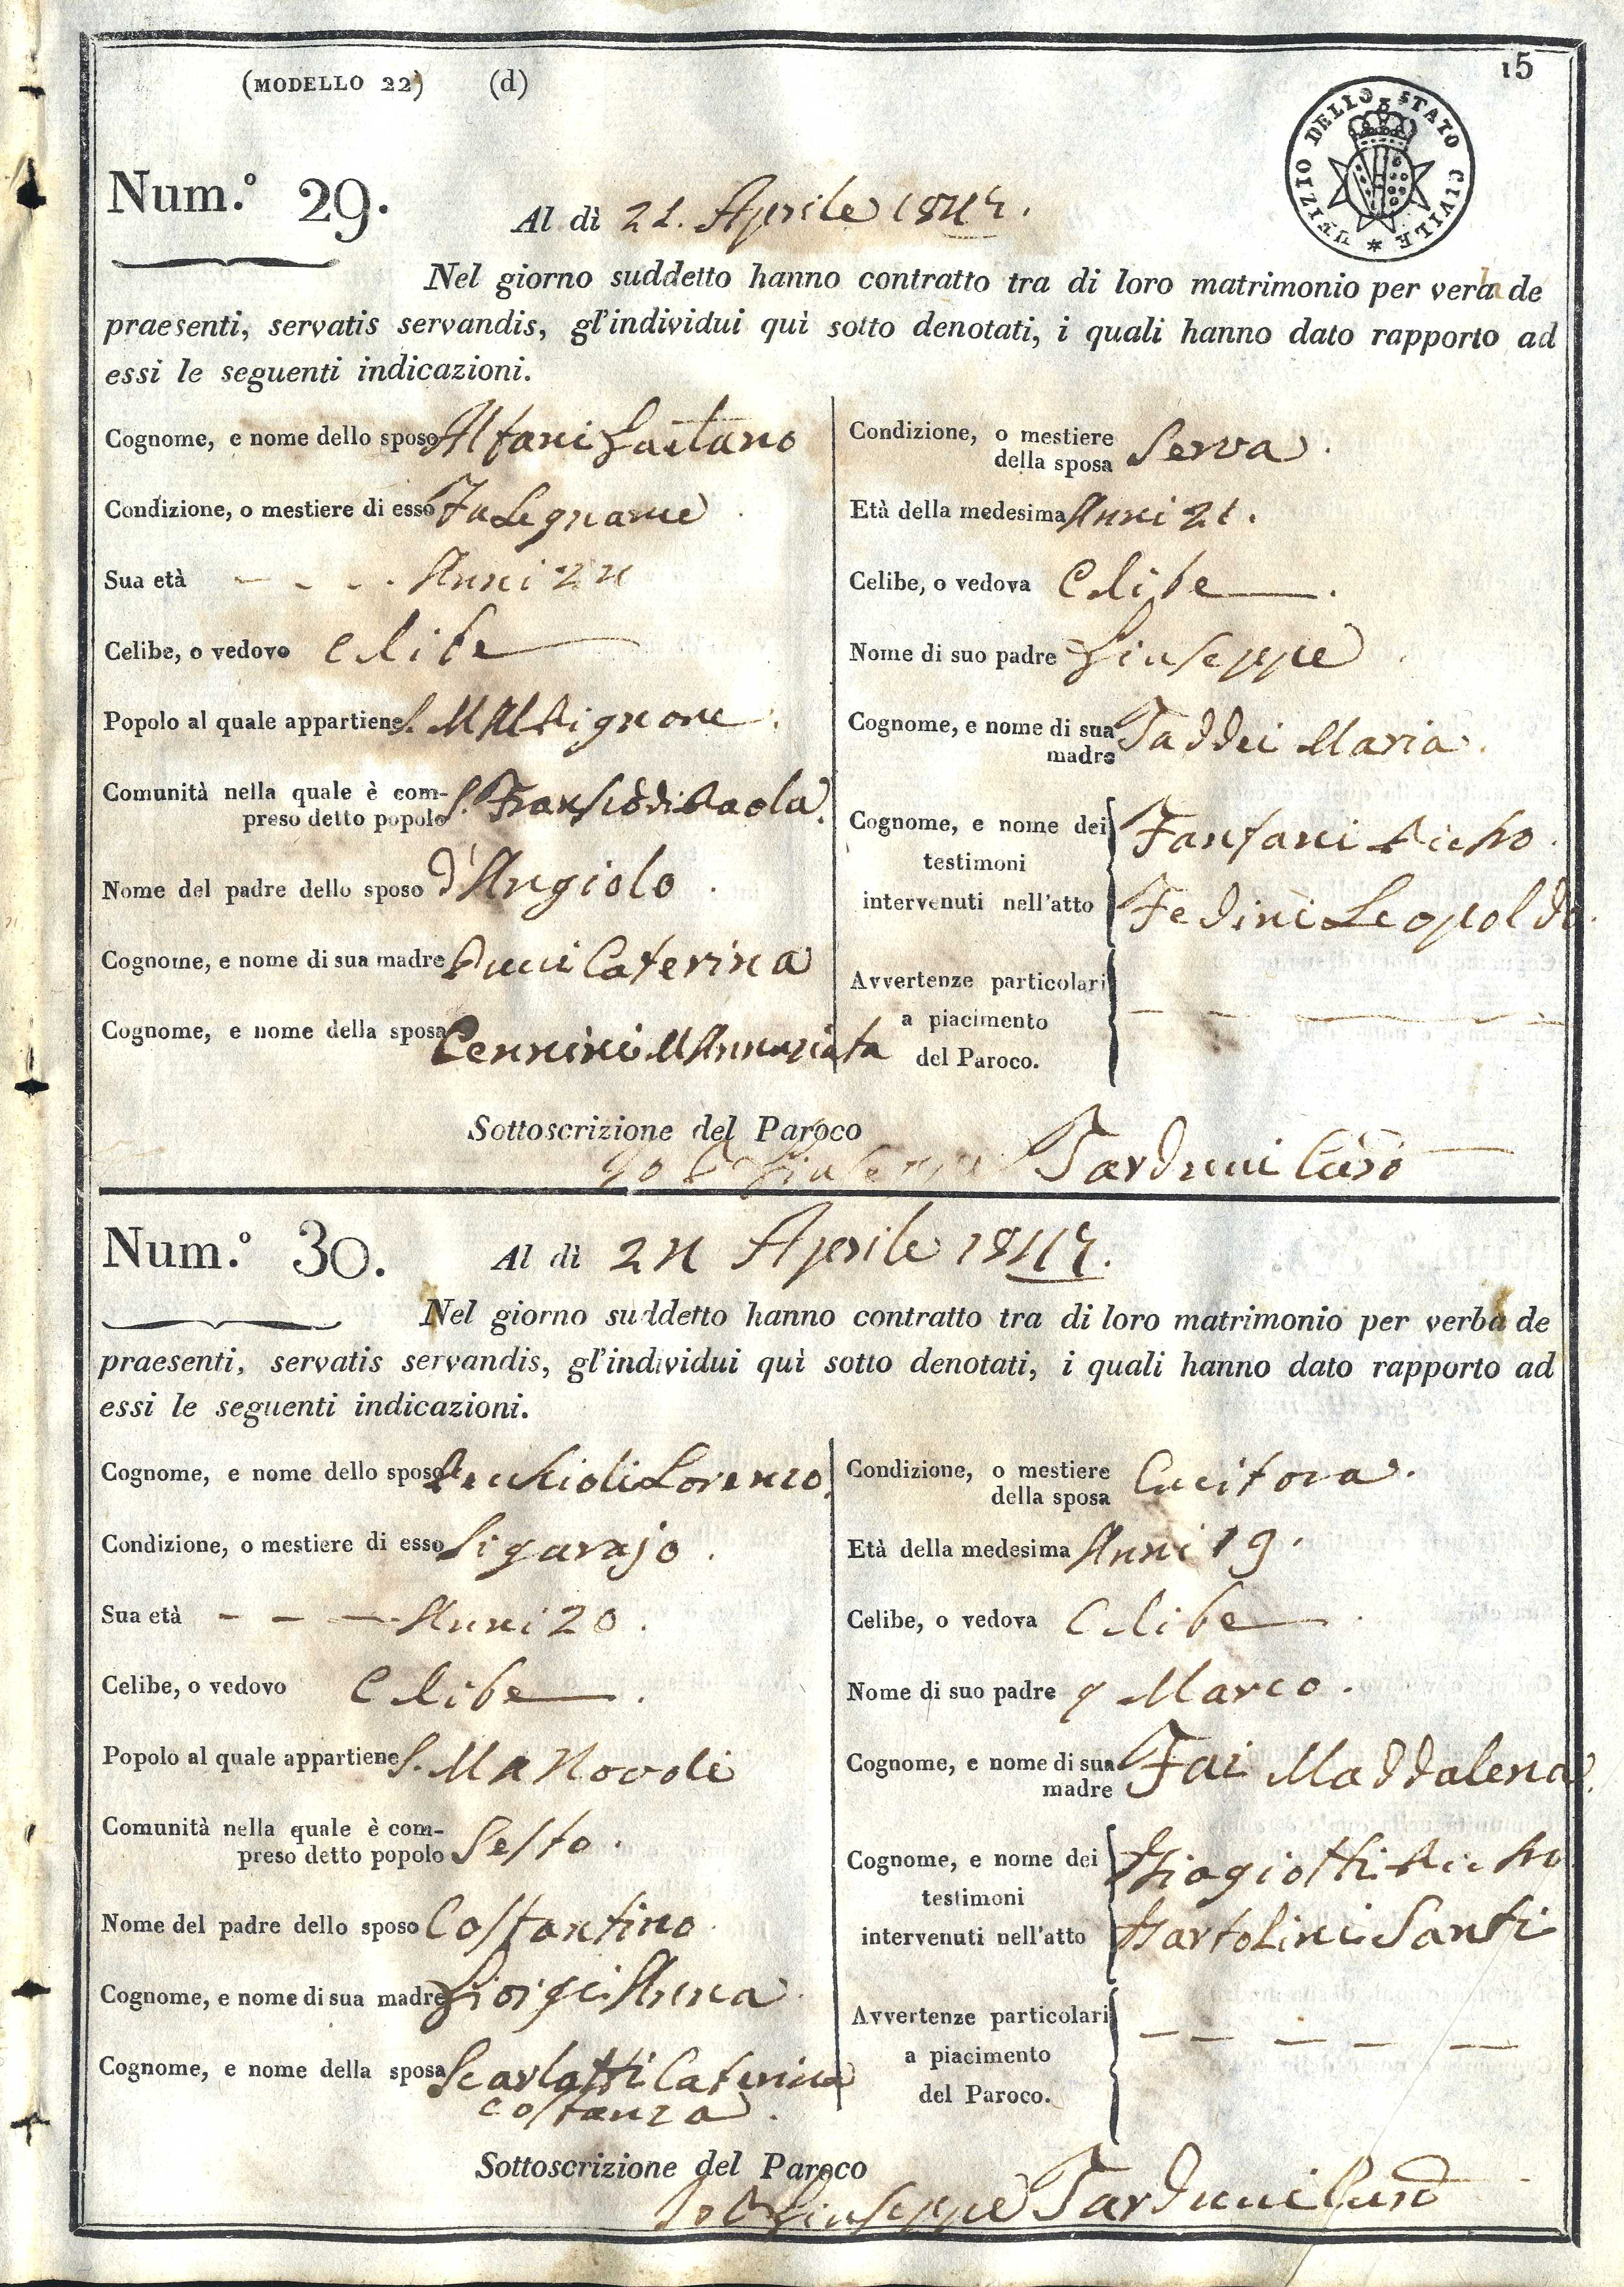 15
(MODELLO 22) (d)
UFIZIO DELLO STATO CIVILE *
Num.º 29. Al dì 21. Aprile 1844.
Nel giorno suddetto hanno contratto tra di loro matrimonio per verba de
praesenti, servatis servandis, gl'individui quì sotto denotati, i quali hanno dato rapporto ad
essi le seguenti indicazioni.
Cognome, e nome dello sposo Alfani Gaetano
Condizione, o mestiere di esso Falegname
Sua età - - . . Anni 24
Celibe, o vedovo Celibe
Popolo al quale appartiene S. M
Comunità nella quale è com-
preso detto popolo S. Fransco di Paola.
Nome del padre dello sposo d'Angiolo .
Cognome, e nome di sua madre Pucci Caterina
Cognome, e nome della sposa Cennini M Annunziata
Condizione, o mestiere
della sposa Serva .
Età della medesima Anni 21.
Celibe, o vedova Celibe .
Nome di suo padre Giuseppe
Cognome, e nome di sua
madre Taddei Maria.
Cognome, e nome dei
testimoni
intervenuti nell'atto
Fanfani Pietro .
Fedini Leopoldo.
Avvertenze particolari
a piacimento
del Paroco.
Sottoscrizione del Paroco
Giuseppe Tarducci
Num.º 30. Al dì 24 Aprile 1844.
Nel giorno suddetto hanno contratto tra di loro matrimonio per verba de
praesenti, servatis servandis, gl'individui quì sotto denotati, i quali hanno dato rapporto ad
essi le seguenti indicazioni.
Cognome, e nome dello sposo Lorenzo.
Condizione, o mestiere di esso Sigarajo .
Sua età - - - Anni 20 .
Celibe, o vedovo Celibe .
Popolo al quale appartiene S. M a Novoli
Comunità nella quale è com-
preso detto popolo Sesto .
Nome del padre dello sposo Costantino
Cognome, e nome di sua madre Giorgi Anna
Cognome, e nome della sposa Scarlatti Caterina
Costanza .
Condizione, o mestiere
della sposa Cucitora .
Età della medesima Anni 19.
Celibe, o vedova Celibe .
Nome di suo padre q Marco .
Cognome, e nome di sua
madre Fai Maddalena.
Cognome, e nome dei
testimoni
intervenuti nell'atto
Biagiotti Pietro
Bartolini Santi
Avvertenze particolari
a piacimento
del Paroco.
Sottoscrizione del Paroco
Giuseppe Tarducci